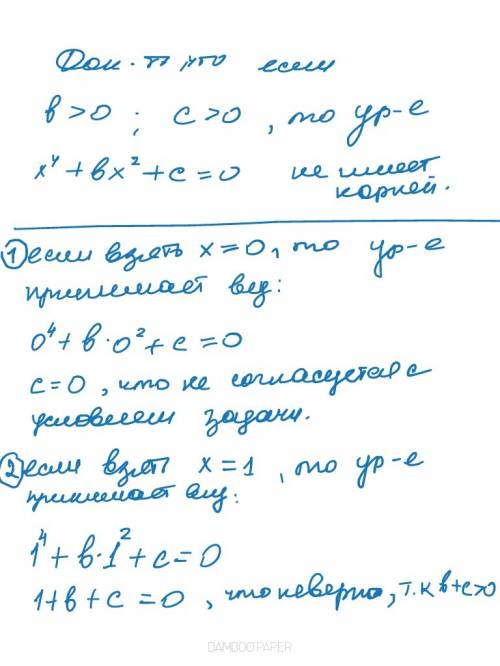 Док-ть что если
в > 0 ; с > 0 , то ур-е
x⁴ + вx² + с = 0 не имеет
корней.
① если взять x = 0, то ур-е
принимает вид:
0⁴ + в · 0² + с = 0
с = 0 , что не согласуется с
условием задачи.
② если взять x = 1 , то ур-е
принимает вид:
1⁴ + в · 1² + с = 0
1 + в + с = 0 , что неверно, т.к в+с>0
BAMBOO PAPER